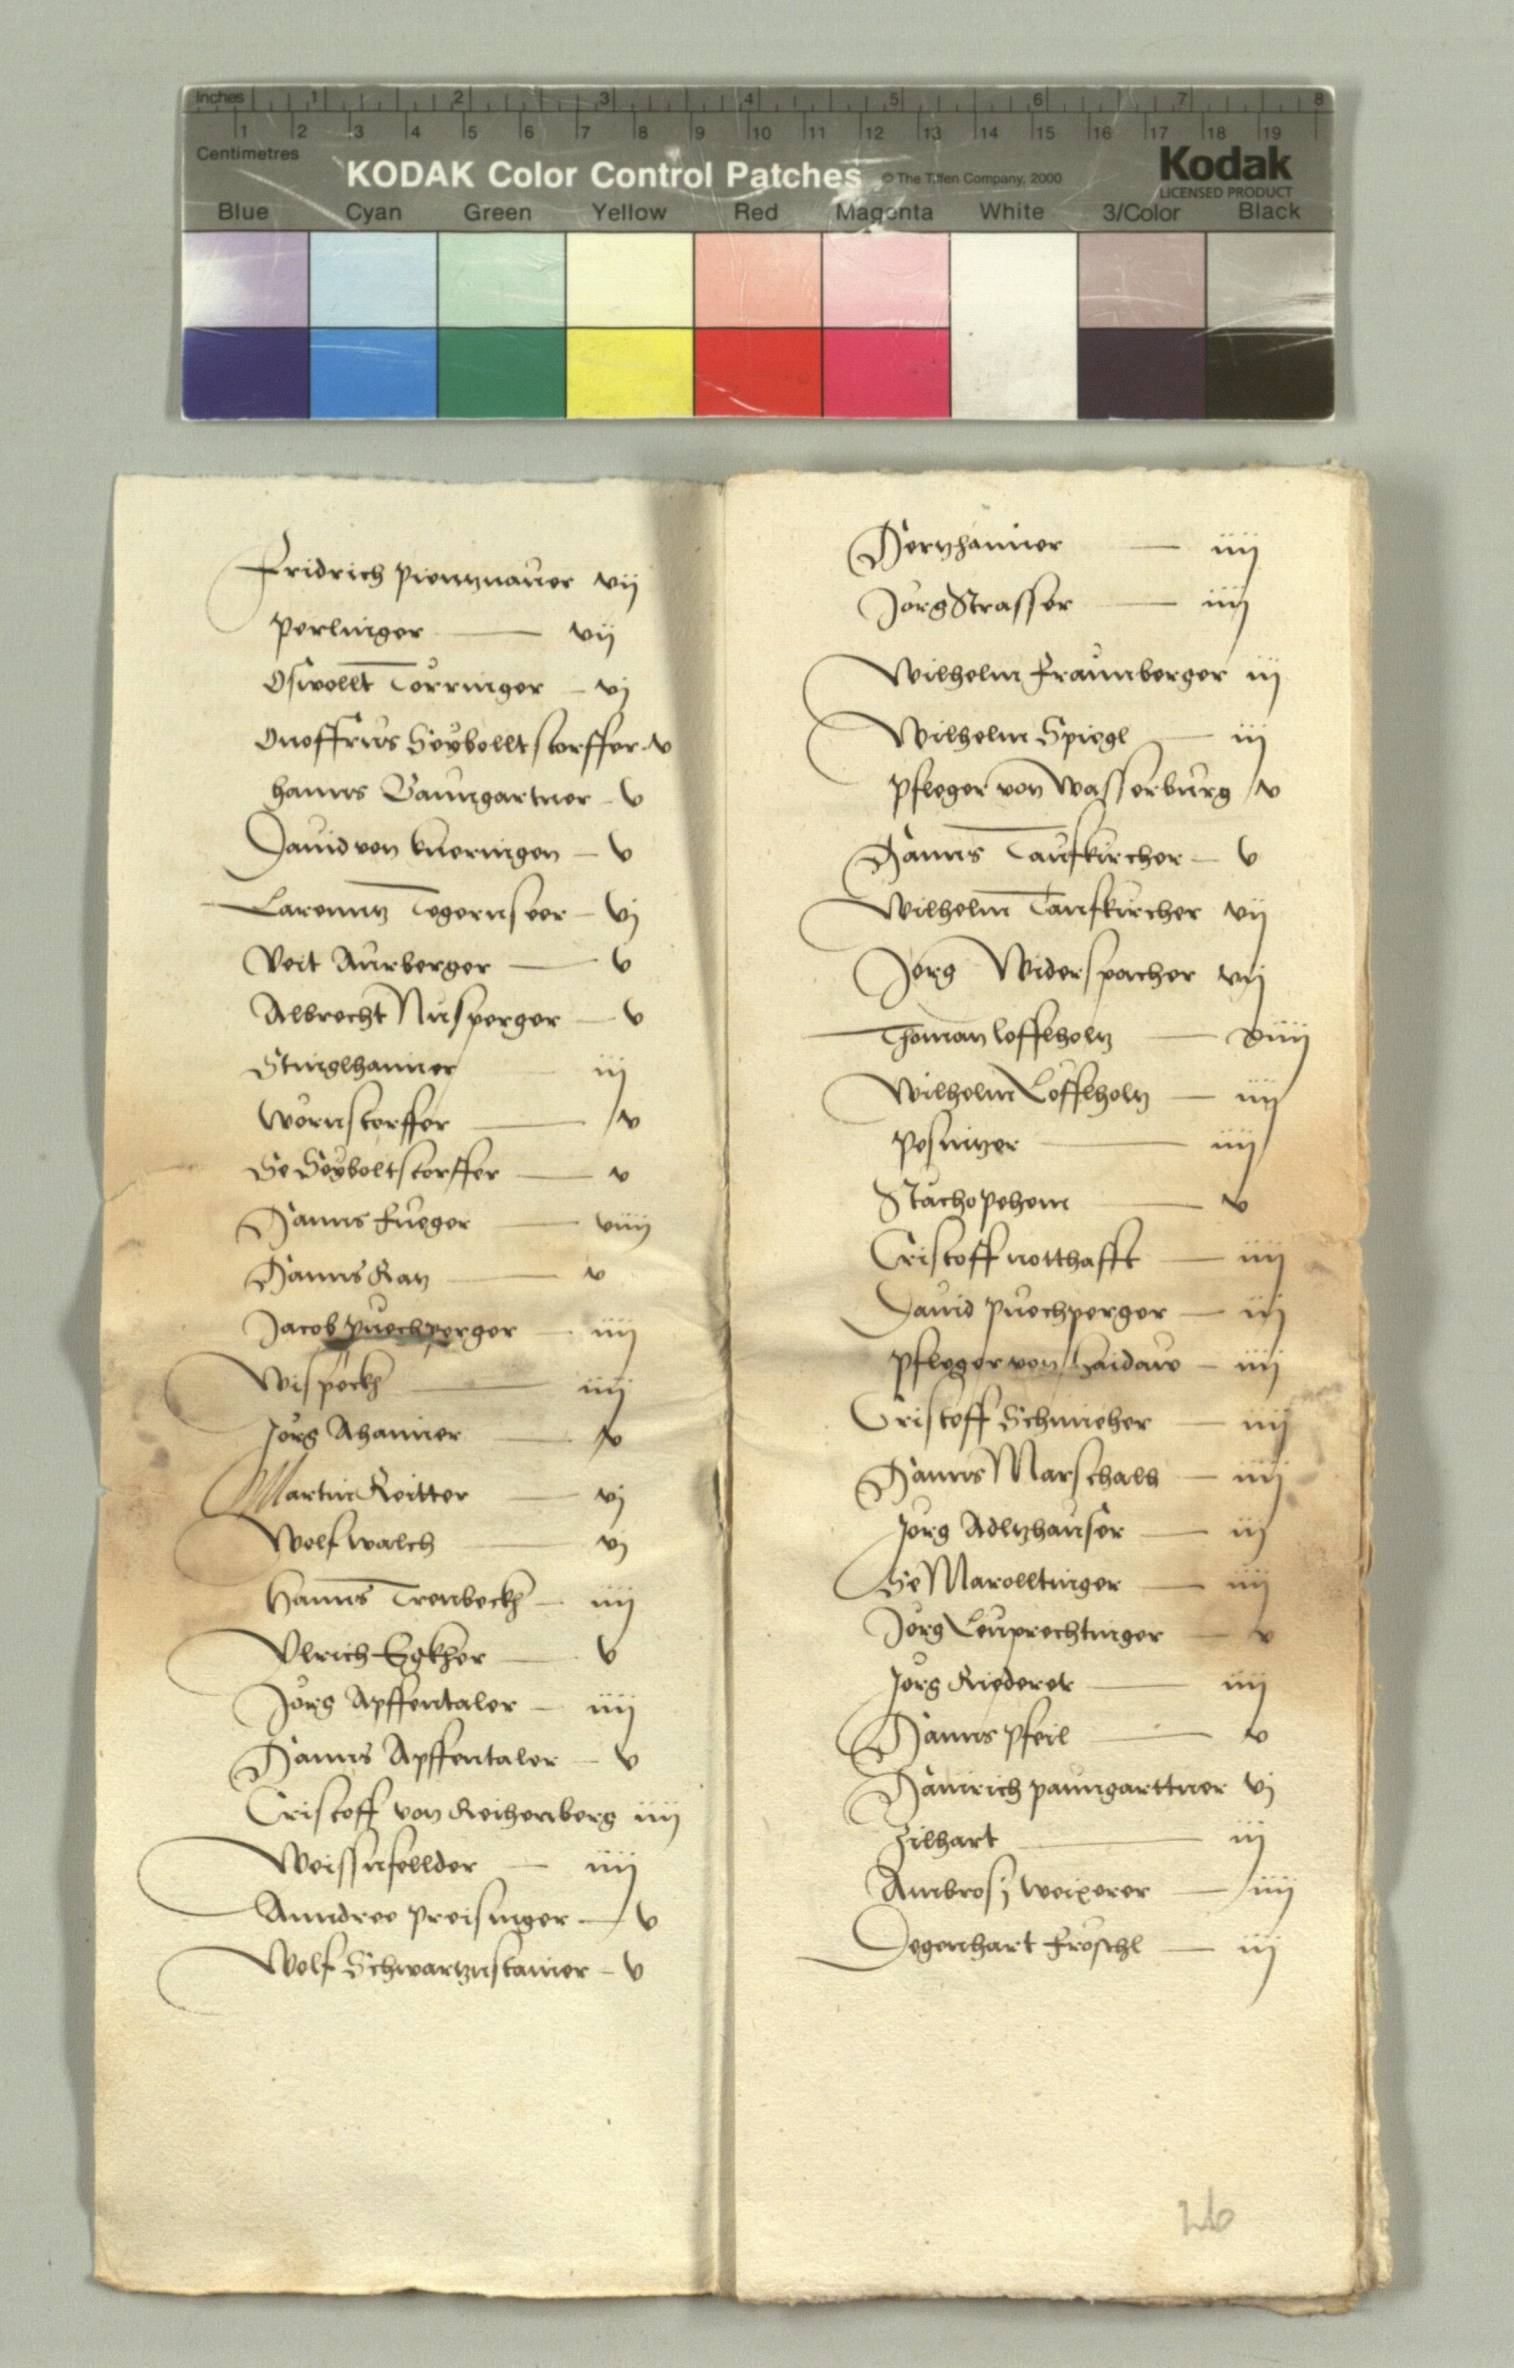 Inches 1 2 3 4 5 6 7 8
1 2 3 4 5 6 7 8 9 10 11 12 13 14 15 16 17 18 19
Centimetres
KODAK Color Control Patches © The Tiffen Company, 2000 Kodak
LICENSED PRODUCT
Blue Cyan Green Yellow Red Magenta White 3/Color Black
Fridrich Pientznauer vij
Perlinger — vij
Oswollt Törringer — vj
Onoffrius Seyboltstorffer — v
Hanns Baumgartner — v
Dauid von Kneringen — v
Larenntz Tegernseer — vj
Veit Aurberger — v
Albrecht Nusperger — v
Stinglhamer iij
Wornstorffer — v
Se Seyboltstorffer — v
Hanns Fueger — viiij
Hanns Katz — v
Jacob Puechperger — iiij
Wispeckh — iiij
Jörg Ahamer — v
Martin Reitter — vj
Wolf Walch — vj
Hanns Trenbeckh — iiij
Vlrich Egkher — v
Jörg Apffentaler — iiij
Hanns Apffentaler — v
Cristoff von Reihenberg iiij
Weissnfellder — iiij
Anndree Preisinger — v
Wolf Schwartznstainer — v
Hertzhaimer — iiij
Jörg Strasser — iiij
Wilhelm Fraunberger iij
Wilhelm Spiegl — iij
Pfleger von Wasserburg v
Hanns Taufkircher — v
Wilhelm Taufkircher vij
Jorg Widerspacher vij
Thoman Loffelholtz —
Wilhelm Löffelholtz — iiij
Posnitzer — iiij
Stacho Pehem — v
Cristoff Notthafft — iiij
Dauid Puechperger — iij
Pfleger von Haidaw — iiij
Cristoff Schmieher — iiij
Hanns Marschalh — iiij
Jörg Adltzhauser — iij
Se Marolltinger — iiij
Jörg Leuprechtinger — v
Jörg Riederer — iiij
Hanns Pfeil — v
Hainrich Paumgarttner vj
Zilhart — iij
Ambrosj Weixerer — iiij
Degenhart Fröschl — iij
26